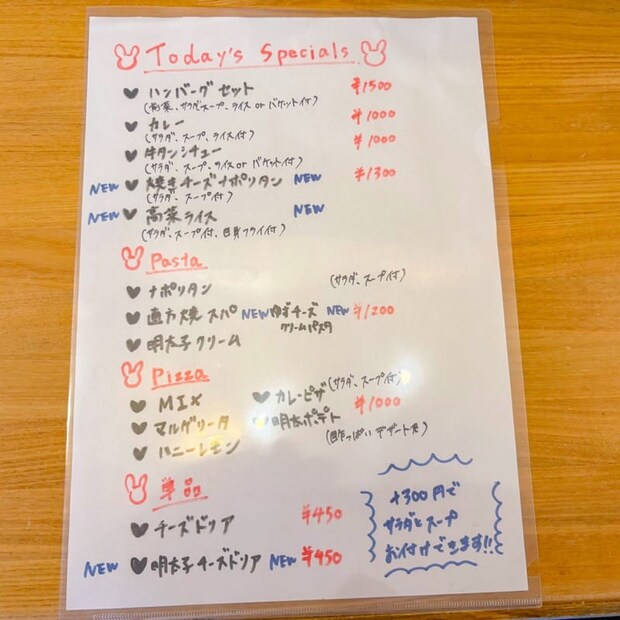 Today's Specials
ハンバーグセット ¥1500
(高菜、サラダスープ、ライス or バケット付)
カレー ¥1000
(サラダ、スープ、ライス付)
牛タンシチュー ¥1000
(サラダ、スープ、ライス or バケット付)
NEW 焼きチーズナポリタン NEW ¥1300
(サラダ、スープ付)
NEW 高菜ライス NEW
(サラダ、スープ付、白身フライ付)
Pasta
(サラダ、スープ付)
ナポリタン
直方焼スパ NEW ゆずチーズ NEW ¥1200
クリームパスタ
明太子クリーム
Pizza
(サラダ、スープ付)
MIX カレーピザ ¥1000
マルゲリータ 明太ポテト
ハニーレモン
単品
チーズドリア ¥450
NEW 明太子チーズドリア NEW ¥450
+300円で
サラダとスープ
お付けできます!!